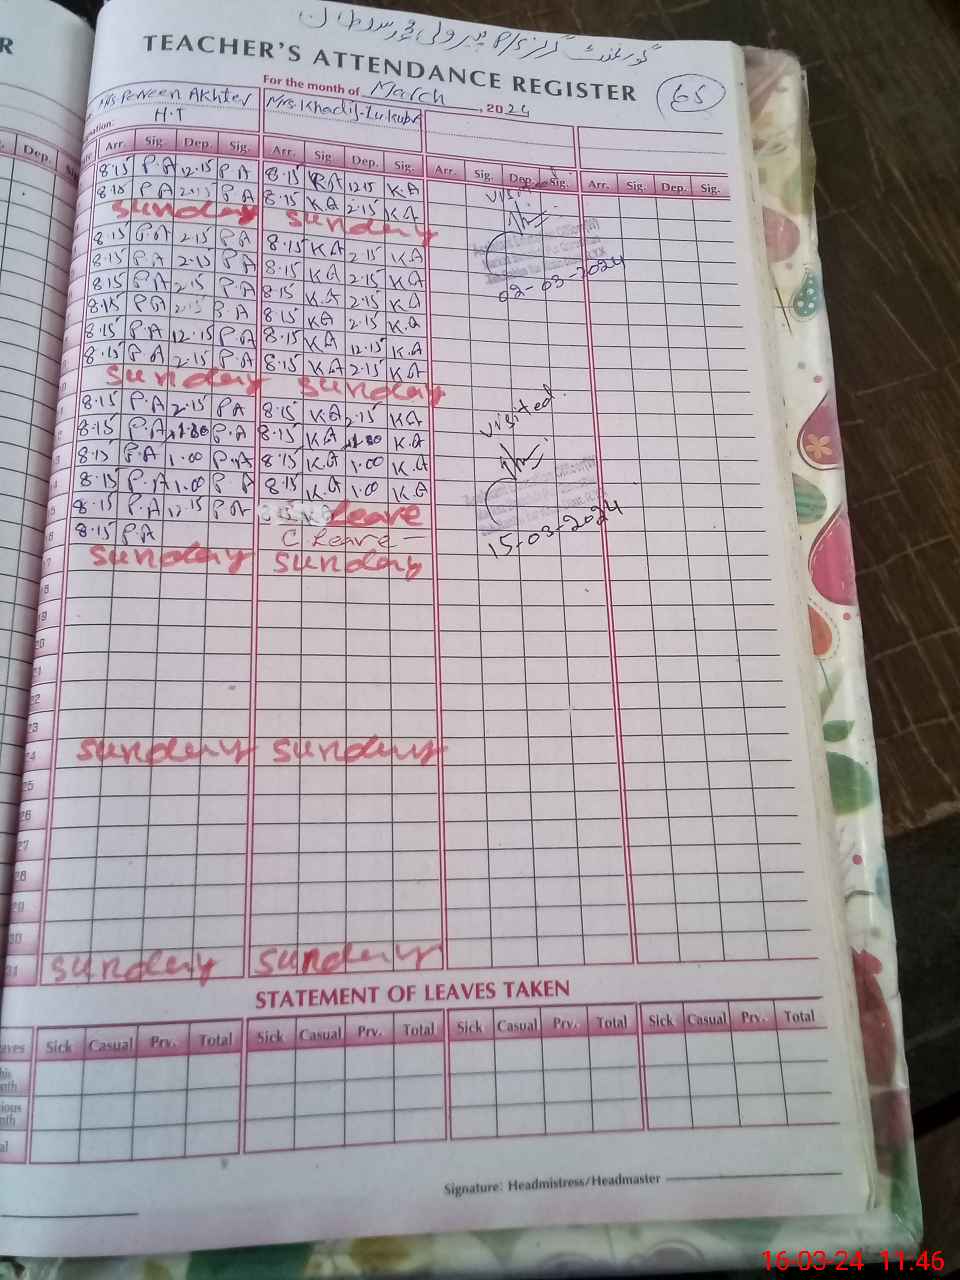 گورنمنٹ گرلز P/S پیرولی
TEACHER'S ATTENDANCE REGISTER
65
For the month of March, 2024
Mrs Perveen Akhter Mrs Khadij-
H.T
Arr. Sig. Dep. Sig. Arr. Sig. Dep. Sig. Arr. Sig. Dep. Sig. Arr. Sig. Dep. Sig.
8.15 P.A 12.15 P A 8.15 K A 12.15 K.A
8.15 P A 2.15 P A 8.15 K.A 2.15 K.A
sunday sunday
8.15 P.A 2.15 P.A 8.15 K.A 2.15 K.A
8.15 P.A 2.15 P.A 8.15 K.A 2.15 K.A
8.15 P.A 2.15 P.A 8.15 K.A 2.15 K.A
8.15 P.A 2.15 P.A 8.15 K.A 2.15 K.A
8.15 P.A 12.15 P.A 8.15 K.A 12.15 K.A
8.15 P.A 2.15 P.A 8.15 K.A 2.15 K.A
sunday sunday
8.15 P.A 2.15 P.A 8.15 K.A 2.15 K.A
8.15 P.A P.A 8.15 K.A K.A
8.15 P.A 1.00 P.A 8.15 K.A 1.00 K.A
8.15 P.A 1.00 P A 8.15 K.A 1.00 K.A
8.15 P.A 12.15 P.A Leave
8.15 P.A C.Leave
sunday sunday
visit
02-03-2024
visited.
15-03-2024
18
19
20
21
22
23
24 sunday sunday
25
26
27
28
29
30
31 sunday sunday
STATEMENT OF LEAVES TAKEN
Sick Casual Prv. Total Sick Casual Prv. Total Sick Casual Prv. Total Sick Casual Prv. Total
Signature: Headmistress/Headmaster
16-03-24 11:46